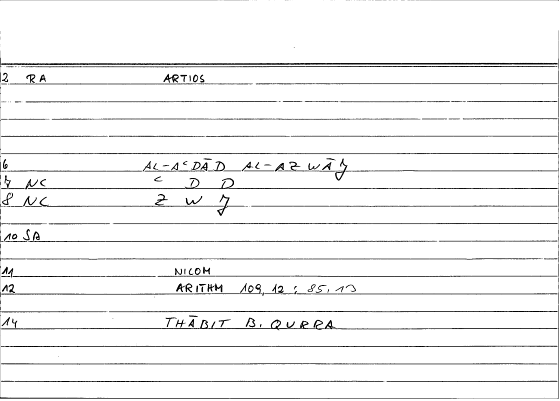 2 RA ARTIOS
6 AL-AʿDĀD AL-AZWĀJ
7 NC ʿ D D
8 NC Z W J
10 SA
11 NICOM
12 ARITHM 109, 12 ; 85, 13
14 THĀBIT B. QURRA